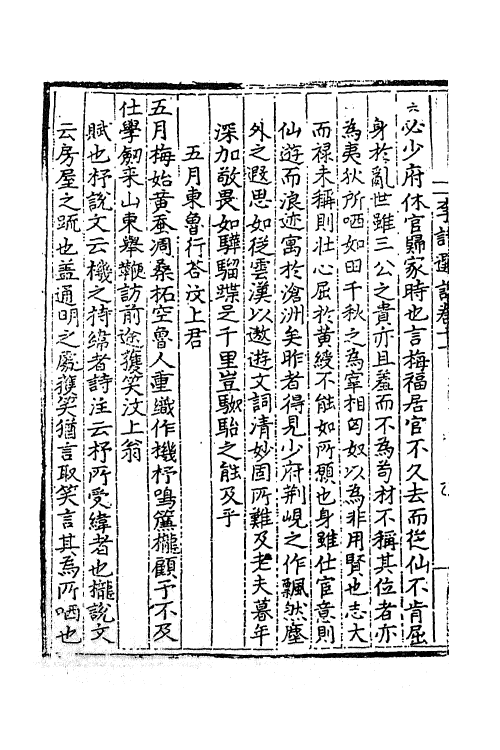 李詩選註卷十一
必少府休官歸家時也言梅福居官不久去而從仙不肯屈
身於亂世雖三公之貴亦且羞而不為苟材不稱其位者亦
為夷狄所哂如田千秋之為宰相匈奴以為非用賢也志大
而祿未稱則壯心屈於黃綬不能如所願也身雖仕宦意則
仙遊而浪迹寓於滄洲矣昨者得見少府荊峴之作飄然塵
外之遐思如從雲漢以遨遊文詞清妙固所難及老夫暮年
深加敬畏如驊騮蹀足千里豈駑駘之能及乎
五月東魯行答汶上君
五月梅始黃蚕凋桑柘空魯人重織作機杼鳴簾櫳顧予不及
仕學劒来山東舉鞭訪前途獲笑汶上翁
賦也杼說文云機之持緯者詩注云杼所受緯者也櫳說文
云房屋之疏也盖通明之處獲笑猶言取笑言其為所哂也